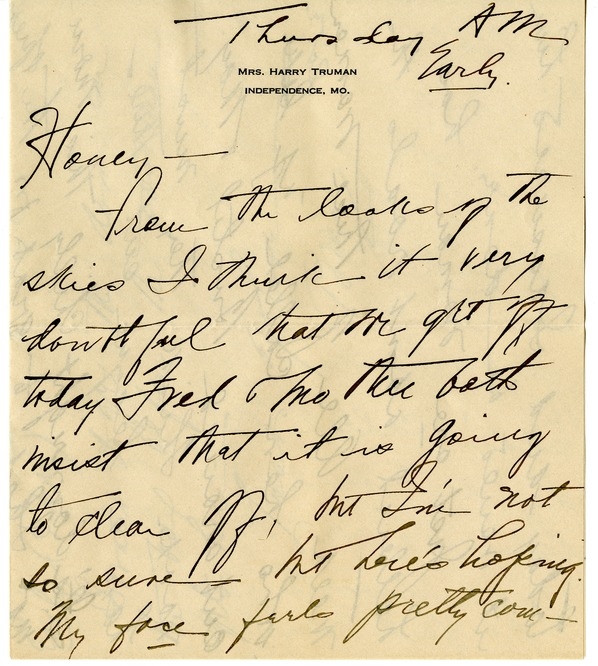 Thursday AM
Early.
MRS. HARRY TRUMAN
INDEPENDENCE, MO.
Honey —
From the looks of the
skies I think it very
doubtful that we get off
today Fred & Mother both
insist that it is going
to clear off, but I'm not
so sure — but here's hoping.
My face feels pretty com-